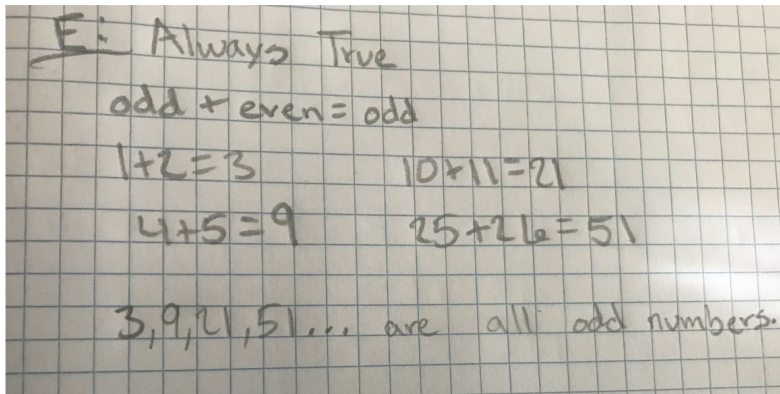 E: Always True
odd + even = odd
1+2=3 10+11=21
4+5=9 25+26=51
3,9,21,51... are all odd numbers.